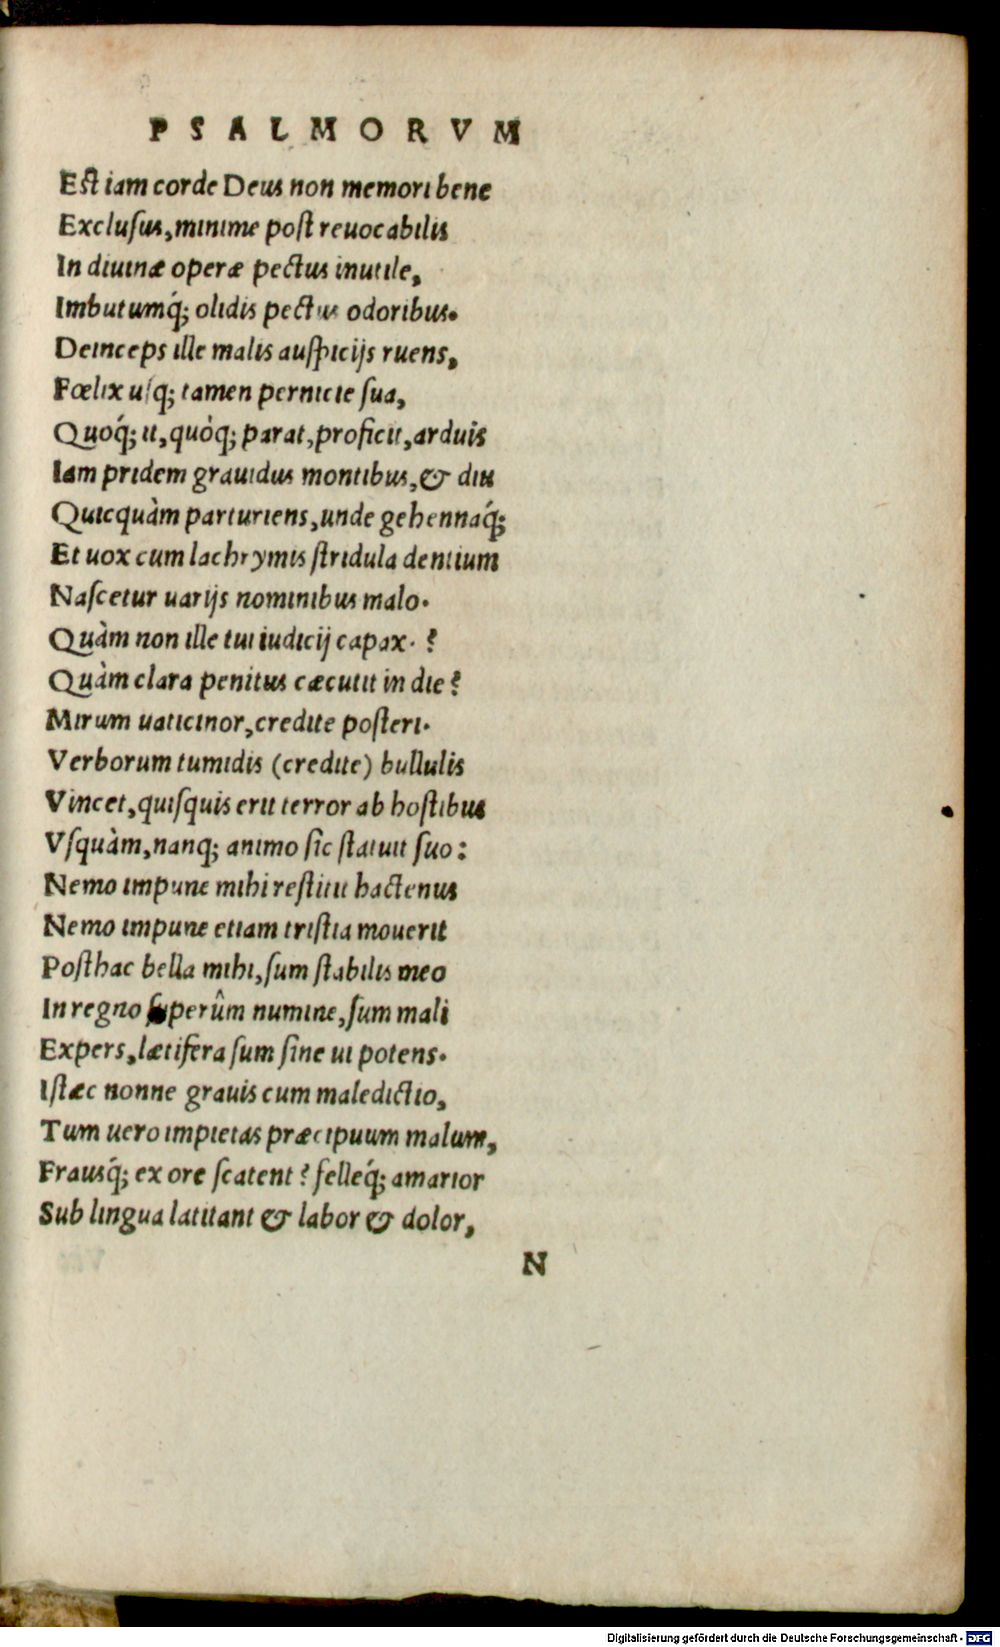 PSALMORVM
Est iam corde Deus non memori bene
Exclusus, minime post reuocabilis
In diuinæ operæ pectus inutile,
Imbutumq́; olidis pectus odoribus.
Deinceps ille malis auspicijs ruens,
Fœlix usq; tamen pernicie sua,
Quoq́; it, quòq; parat, proficit, arduis
Iam pridem grauidus montibus, & diu
Quicquàm parturiens, unde gehennaq́;
Et uox cum lachrymis stridula dentium
Nascetur uarijs nominibus malo.
Quàm non ille tui iudicij capax. ?
Quàm clara penitus cæcutit in die?
Mirum uaticinor, credite posteri.
Verborum tumidis (credite) bullulis
Vincet, quisquis erit terror ab hostibus
Vsquàm, nanq; animo sic statuit suo:
Nemo impune mihi restitit hactenus
Nemo impune etiam tristia mouerit
Posthac bella mihi, sum stabilis meo
In regno superûm numine, sum mali
Expers, lætifera sum sine ui potens.
Istæc nonne grauis cum maledictio,
Tum uero impietas præcipuum malum,
Frausq́; ex ore scatent? felleq́; amarior
Sub lingua latitant & labor & dolor,
N
Digitalisierung gefördert durch die Deutsche Forschungsgemeinschaft - DFG